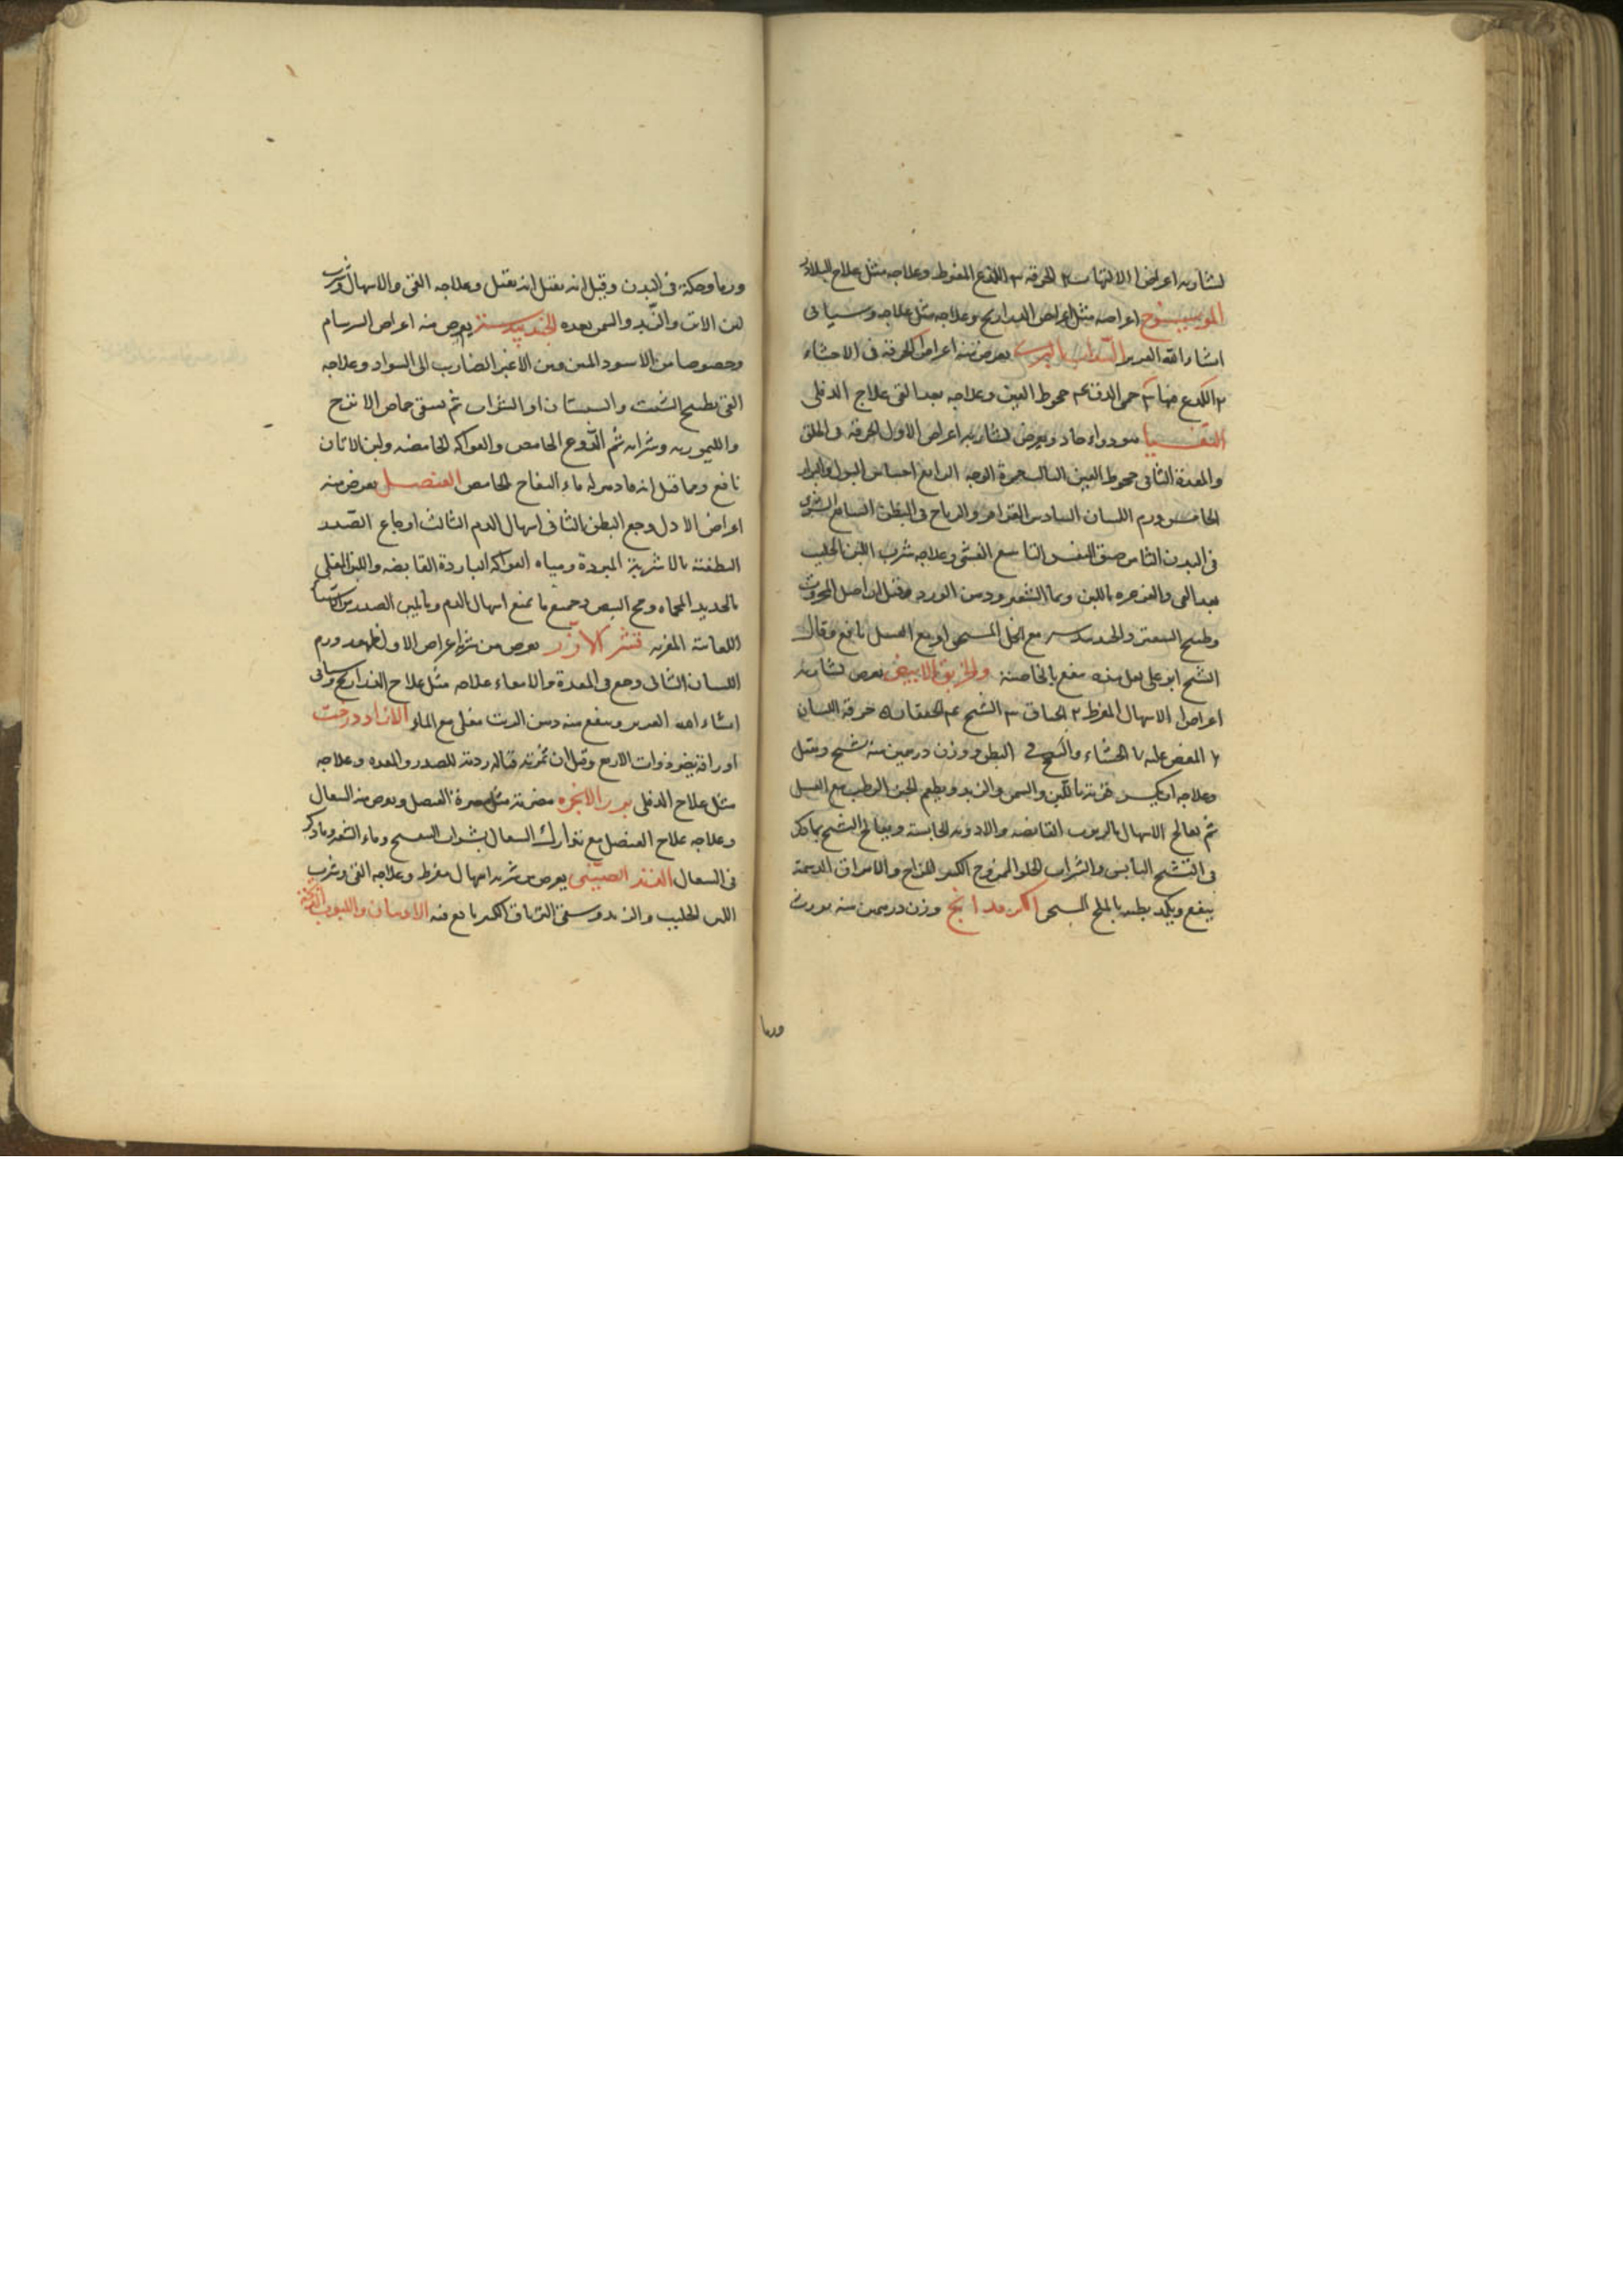 لشاربه اعراض ا الالتهاب ٢ الحرقة ٣ اللذع المفرط وعلاجه مثل علاج البلاذر
الميويبزج اعراضه مثل اعراض الذراريح وعلاجه مثل علاجه وسياتى
انشاء الله العزيز السذاب البرى يعرض منه اعراض الحرقة فى الاحشاء
٢ اللذع فيها ٣ حمى الدق ٤ جحوظ العين وعلاجه بعد القى علاج الدفلى
الثفسيا هو دواء حاد ويعرض لشاربه اعراض الاول الحرقة فى الحلق
والمعدة الثانى جحوظ العين الثالث حمرة الوجه الرابع احتباس البول والبراز
الخامس ورم اللسان السادس القراقر والرياح فى البطن السابع البثور
فى البدن الثامن ضيق النفس التاسع الغشى وعلاجه شرب اللبن الحليب
بعد القى والغرغرة باللبن وماء الشعير ودهن الورد وقيل ان اصل المحروث
وطبيخ السعتر والجندبيدستر مع الخل المسخن او مع العسل نافع وقال
الشيخ ابو على لعل هذه تنفع بالخاصية والخربق الابيض يعرض لشاربه
اعراض ا الاسهال المفرط ٢ الخناق ٣ التشنج ٤ الخفقان ٥ حرقة اللسان
٦ العض عليه ٧ الجشاء والنفخ فى البطن ووزن درهمين منه تشنج ويقتل
وعلاجه ان يكسر قوته باللبن والسمن والزبد ويطعم الجبن الرطب مع العسل
ثم يعالج الاسهال بالربوب القابضة والادوية الحابسة ويعالج التشنج بما ذكر
فى التشنج اليابس والشراب الحلو الممزوج الكثير المزاج والامراق الدسمة
ينفع ويكمد بطنه بالملح المسخن وزن درهمين منه يورث
وربما
وربما وحكة فى البدن وقيل انه يقتل انه يقتل وعلاجه القى والاسهال وشرب
لبن الاتن والزبد والسمن بعده الجندبيدستر يعرض منه اعراض السرسام
وخصوصا من الاسود المنتن ومن الاغبر الضارب الى السواد وعلاجه
القى بطبيخ الشبت والسبستان او الشراب ثم يسقى حماض الاترج
والليمو وربه وشرابه ثم الدوغ الحامض والفواكه الحامضة ولبن الاتان
نافع ومما قيل انه فادزهر له ماء التفاح الحامض العنصل يعرض منه
اعراض الاول وجع البطن الثانى اسهال الدم الثالث اوجاع الصدر
المطفئة بالاشربة المبردة ومياه الفواكه الباردة القابضة واللبن المغلى
بالحديد المحماة ومح البيض وجميع ما يمنع اسهال الدم وبما يلين الصدر من
اللعابية المغرية قشر الارز يعرض من شربه اعراض الاول ورم
اللسان الثانى وجع فى المعدة والامعاء علاجه مثل علاج الذراريح وسياتى
انشاء الله العزيز وينفع منه دهن الزيت مغلى مع الماء الازاددرخت
اوراقه يضر ذوات الاربع وقيل ان ثمرته قتالة رديئة للصدر والمعدة وعلاجه
مثل علاج الدفلى بزر الانجرة مضرته مثل مضرة العنصل ويعرض منه السعال
وعلاجه علاج العنصل مع تدارك السعال بشراب البنفسج وماء الشعير وما ذكر
فى السعال الصينى يعرض من شربه اسهال مفرط وعلاجه القى وشرب
اللبن الحليب والزبد وسقى الترياق الكبير نافع منه الادهان واللبوب الزنخة